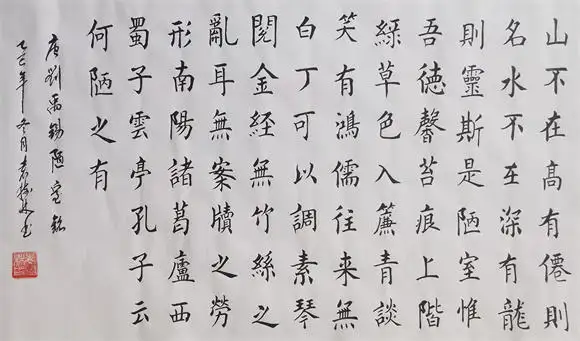 山不在高有僊則
名水不在深有龍
則靈斯是陋室惟
吾德馨苔痕上階
綠草色入簾青談
笑有鴻儒往来無
白丁可以調素琴
閱金経無竹絲之
亂耳無案牘之勞
形南陽諸葛廬西
蜀子雲亭孔子云
何陋之有
唐劉禹錫陋室銘
年冬月